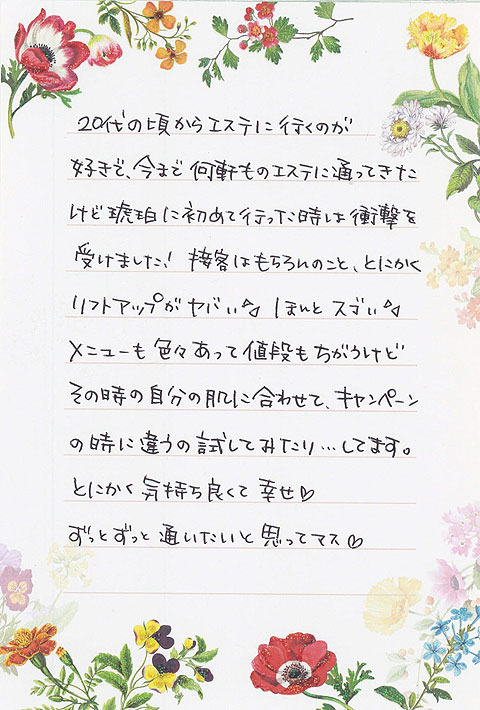 20代の頃からエステに行くのが
好きで、今まで何軒ものエステに通ってきた
けど琥珀に初めて行った時は衝撃を
受けました! 接客はもちろんのこと、とにかく
リフトアップがヤバい♪ ほんとスゴい♪
メニューも色々あって値段もちがうけど
その時の自分の肌に合わせて、キャンペーン
の時に違うの試してみたり…してます。
とにかく気持ち良くて幸せ♡
ずっとずっと通いたいと思ってマス♡